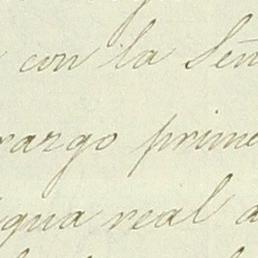 con la Señ
razgo prime
igua real d